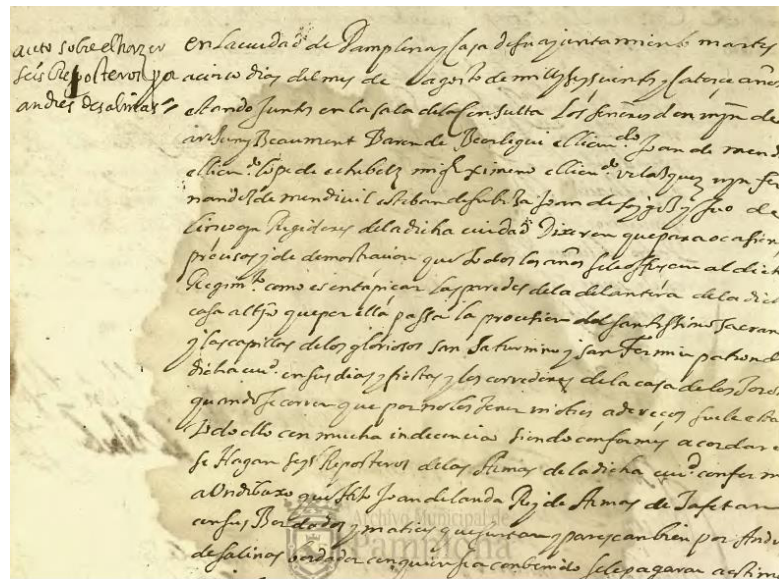 auto sobre el hazer
seis Reposteros por
andres de salinas
en La ciudad de Pamplona y Casa de su ajuntamiento martes
a cinco dias del mes de agosto de mill y seyscientos y Catorce años
estando Juntos en la sala de la Consulta Los señores don mⁿ de
Beaumont Baron de Beorlegui el licen.do Joan de
el licen.do Lope de echebelz mig.l ximeno el licen.do velazquez mⁿ fer
nandez de mendivil esteban de subiza Joan de y fr.co de
Regidores de la dicha ciudad Dixeron que para ocasiones
precisas y de demostracion que todos los años se le offrescen al dicho
Regim.to como es entapicar Las paredes de la delantera de la dicha
casa al tpo que por ella passa la procession del santissimo sacram
y las capillas de los gloriosos san Saturnino y san Fermin patron d
dicha ciu.d en sus dias y fiestas y los corredores de la casa de los Toros
quando se corren que por no los tener ni otros adereços suele esta
todo ello con mucha indecencia siendo conformes acordaron
se Hagan seys Reposteros de las Armas de la dicha ciu.d conforme
a Un dibuxo que hizo Joan de landa Rey de Armas de Tafetan
con sus Bordados y matices que juntan y parezcan bien por Andres
de salinas bordador con quien sea convenido se le pagaran a estim
Archivo Municipal de
Pamplona